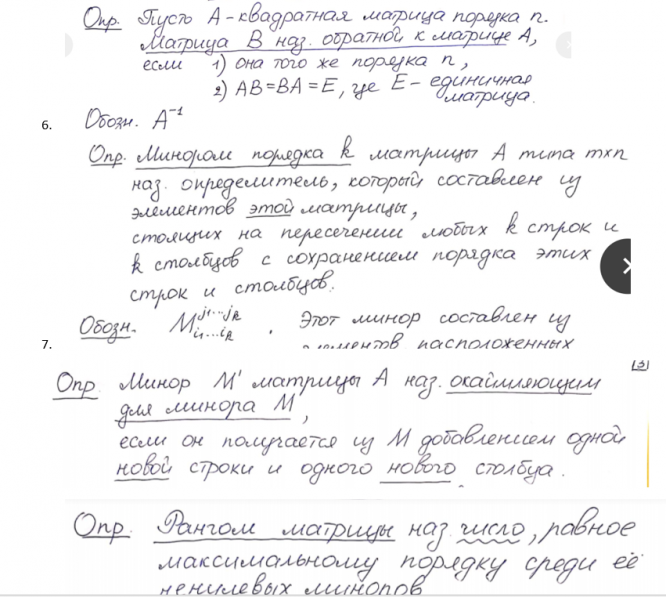 Опр. Пусть A - квадратная матрица порядка n.
Матрица B наз. обратной к матрице A,
если 1) она того же порядка n,
2) AB=BA=E, где E - единичная
матрица.
6. Обозн. A⁻¹
Опр. Минором порядка k матрицы A типа m×n
наз. определитель, который составлен из
элементов этой матрицы,
стоящих на пересечении любых k строк и
k столбцов с сохранением порядка этих
строк и столбцов.
Обозн. M^{j₁...jₖ}_{i₁...iₖ}. Этот минор составлен из
7. расположенных
Опр. Минор M' матрицы A наз. окаймляющим
для минора M,
если он получается из M добавлением одной
новой строки и одного нового столбца.
Опр. Рангом матрицы наз. число, равное
максимальному порядку среди её
ненулевых миноров